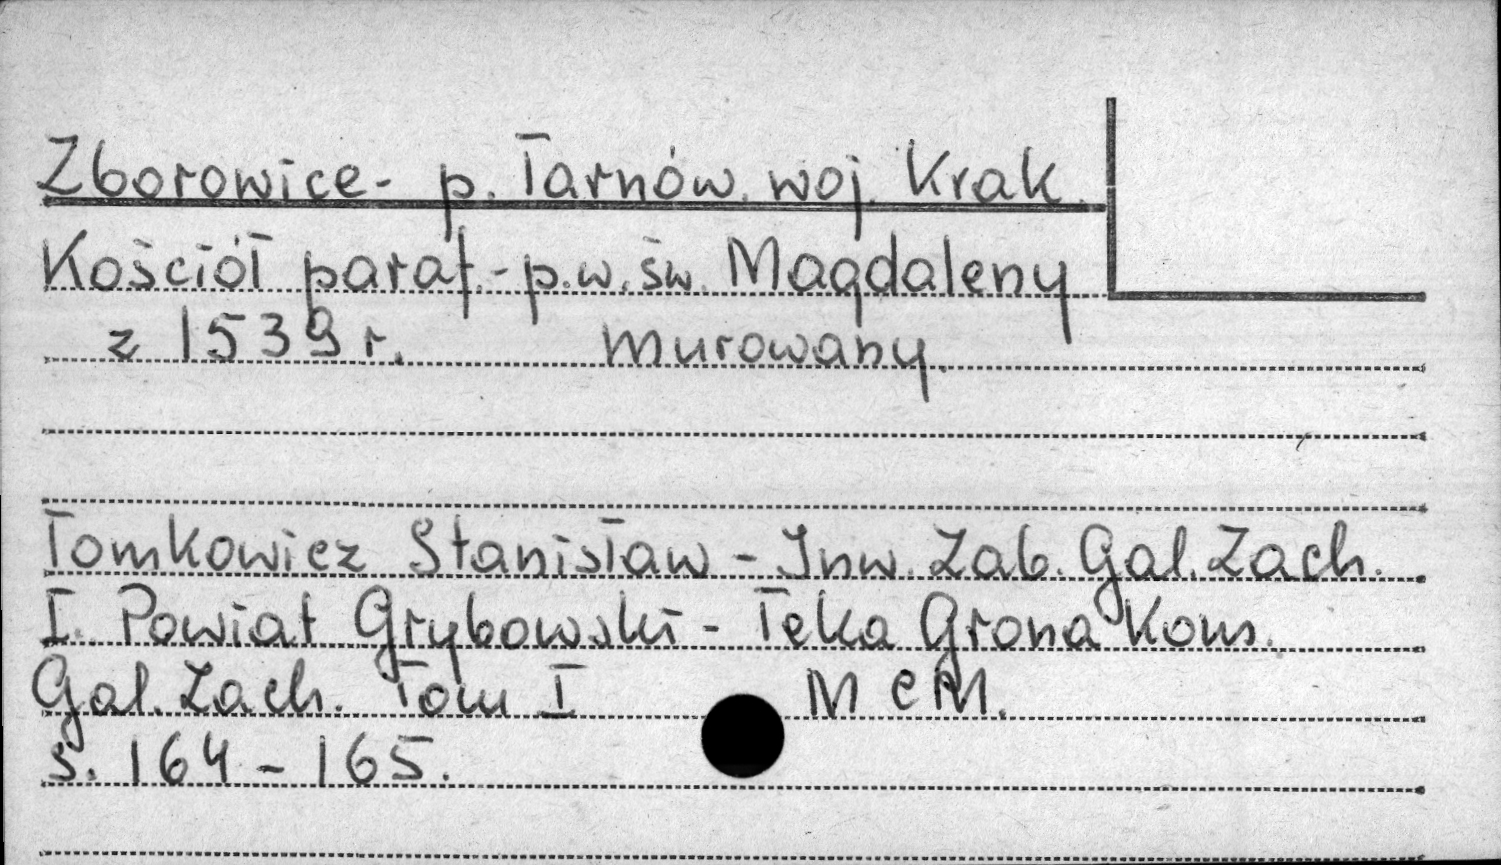 Zborowice - p. Tarnów. woj. Krak.
Kościół paraf. - p.w. św. Magdaleny
z 1539 r. murowany.
Tomkowicz Stanisław - Inw. Zab. Gal. Zach.
I. Powiat Grybowski - Teka Grona Kons.
Gal. Zach. Tom I MCM.
s. 164 - 165.